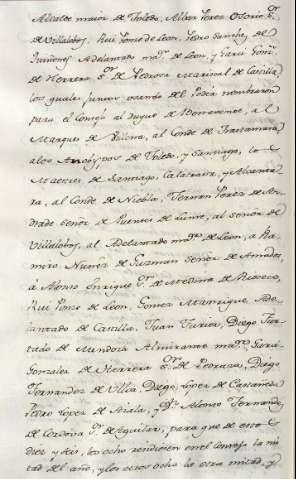 Alcalde maior de Toledo, Alvar Perez Osorio Sr.
de Villalobos, Rui Ponze de Leon, Pedro Sanchez de
Quiñones Adelantado maor. de Leon, y Garci Gonz.
de Herrera Sr. de Pedraza Mariscal de Castilla
los quales juntos usando del Poder nombraron
para el Consejo al Duque de Benavente, al
Marques de Villena, al Conde de Trastamara
a los Arzóypos de Toledo, y Santiago, los
Maestres de Santiago, Calatrava, y Alcanta-
ra, al Conde de Niebla, Fernan Perez de An-
drade Señor de Puentes de Lume, al señor de
Villalobos, al Adelantado maor. de Leon, a Ra-
miro Nuñez de Guzman Señor de Amados,
a Alonso Enriquez Sr. de Medina de Rioseco,
Rui Ponze de Leon, Gomez Manrique Ade-
lantado de Castilla, Juan Furtado, Diego Fur-
tado de Mendoza Almirante maor. Garci
Gonzalez de Herrera Sr. de Pedraza, Diego
Fernandez de Ulloa, Diego Lopez de Castañeda
Pedro Lopez de Aiala, y Dn. Alonso Fernandez
de Cordova Sr. de Aguilar, para que de estos
diez y seis, los ocho residiesen en el Consejo la mi-
tad del año, y los otros ocho la otra mitad, y